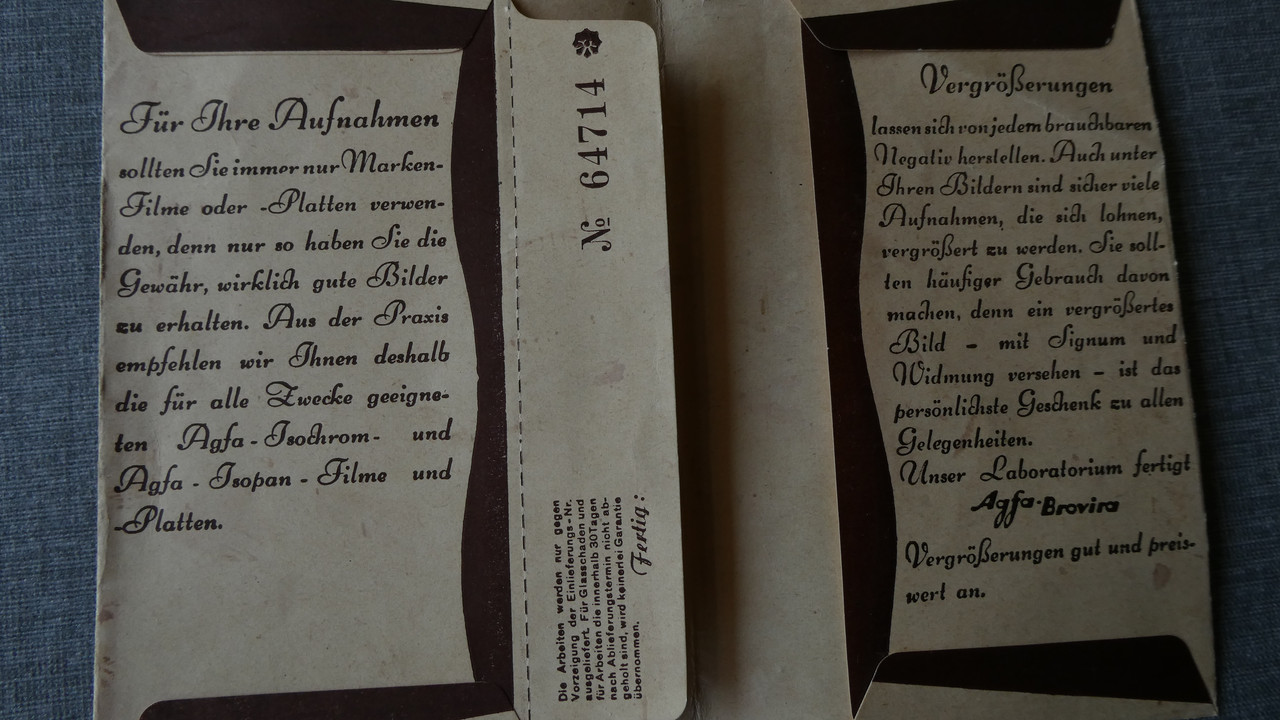 Für Ihre Aufnahmen
sollten Sie immer nur Marken-
Filme oder -Platten verwen-
den, denn nur so haben Sie die
Gewähr, wirklich gute Bilder
zu erhalten. Aus der Praxis
empfehlen wir Ihnen deshalb
die für alle Zwecke geeigne-
ten Agfa-Isochrom- und
Agfa-Isopan-Filme und
-Platten.
№ 64714
Die Arbeiten werden nur gegen
Vorzeigung der Einlieferungs-Nr.
ausgeliefert. Für Glasschäden und
für Arbeiten die innerhalb 30 Tagen
nach Ablieferungstermin nicht ab-
geholt sind, wird keinerlei Garantie
übernommen.
Fertig:
Vergrößerungen
lassen sich von jedem brauchbaren
Negativ herstellen. Auch unter
Ihren Bildern sind sicher viele
Aufnahmen, die sich lohnen,
vergrößert zu werden. Sie soll-
ten häufiger Gebrauch davon
machen, denn ein vergrößertes
Bild – mit Signum und
Widmung versehen – ist das
persönlichste Geschenk zu allen
Gelegenheiten.
Unser Laboratorium fertigt
Agfa-Brovira
Vergrößerungen gut und preis-
wert an.